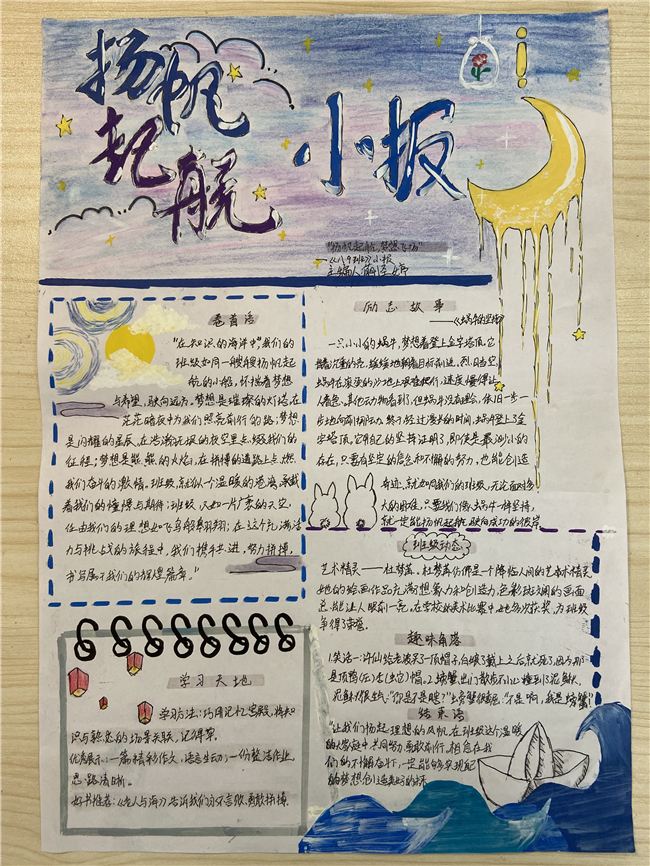 扬帆
起航
小报
"扬帆起航,梦想飞扬"
小报
主编人
卷首语
"在知识的海洋中"我们的
班级如同一艘艘扬帆起
航的小船,怀揣着梦想
与希望,驶向远方。梦想是璀璨的灯塔,在
茫茫暗夜中为我们照亮前行的路;梦想
是闪耀的星辰,在浩瀚无垠的夜空里点缀我们的
征程;梦想是熊熊的火焰,在拼搏的道路上点燃
我们奋斗的激情。班级,就似一个温暖的港湾,承载
着我们的憧憬与期待;班级,又如一片广袤的天空,
任由我们的理想如飞鸟般翱翔;在这个充满活
力与挑战的旅程中,我们携手共进,努力拼搏,
书写属于我们的辉煌篇章。"
励志故事
——《蜗牛的坚持》
一只小小的蜗牛,梦想着登上金字塔顶,它
背着沉重的壳,缓缓地朝着目标前进。烈日当空,
蜗牛在滚烫的沙地上艰难爬行,速度慢得让
人着急。其他动物看到了,但蜗牛没有理会,依旧一步一
步地向前挪动。终于经过漫长的时间,蜗牛登上了金
字塔顶,它用自己的坚持证明了,即使是最渺小的
存在,只要有坚定的信念和不懈的努力,也能创造
奇迹,就如同我们的班级,无论面对多
大的困难,只要我们像蜗牛一样坚持,
就一定能扬帆起航,驶向成功的彼岸
班级动态
艺术精灵——杜梦菡,杜梦菡仿佛是一个降临人间的艺术精灵
她的绘画作品充满想象力和创造力,色彩斑斓的画面
总能让人眼前一亮,在学校的美术比赛中,她多次获奖,为班级
争得了荣誉。
趣味角落
1.笑话一:许仙给老婆买了一顶帽子,白娘子戴上之后就死了,因为那
是顶鸭(压)舌(蛇)帽。2.螃蟹出门散步不小心撞到了泥鳅,
泥鳅很生气:"你是不是瞎?"螃蟹很委屈:"不是啊,我是螃蟹!"
结束语
"让我们扬起理想的风帆,在班级这个温暖
的大家庭中共同努力,勇敢前行。相信在我
们的不懈奋斗下,一定能够实现自己
的梦想,创造美好的
学习天地
学习方法:巧用记忆宫殿,将知
识与熟悉的场景关联,记得牢。
优秀展示:一篇精彩作文,语言生动;一份整洁作业,
思路清晰。
好书推荐:《老人与海》告诉我们永不言败,勇敢拼搏